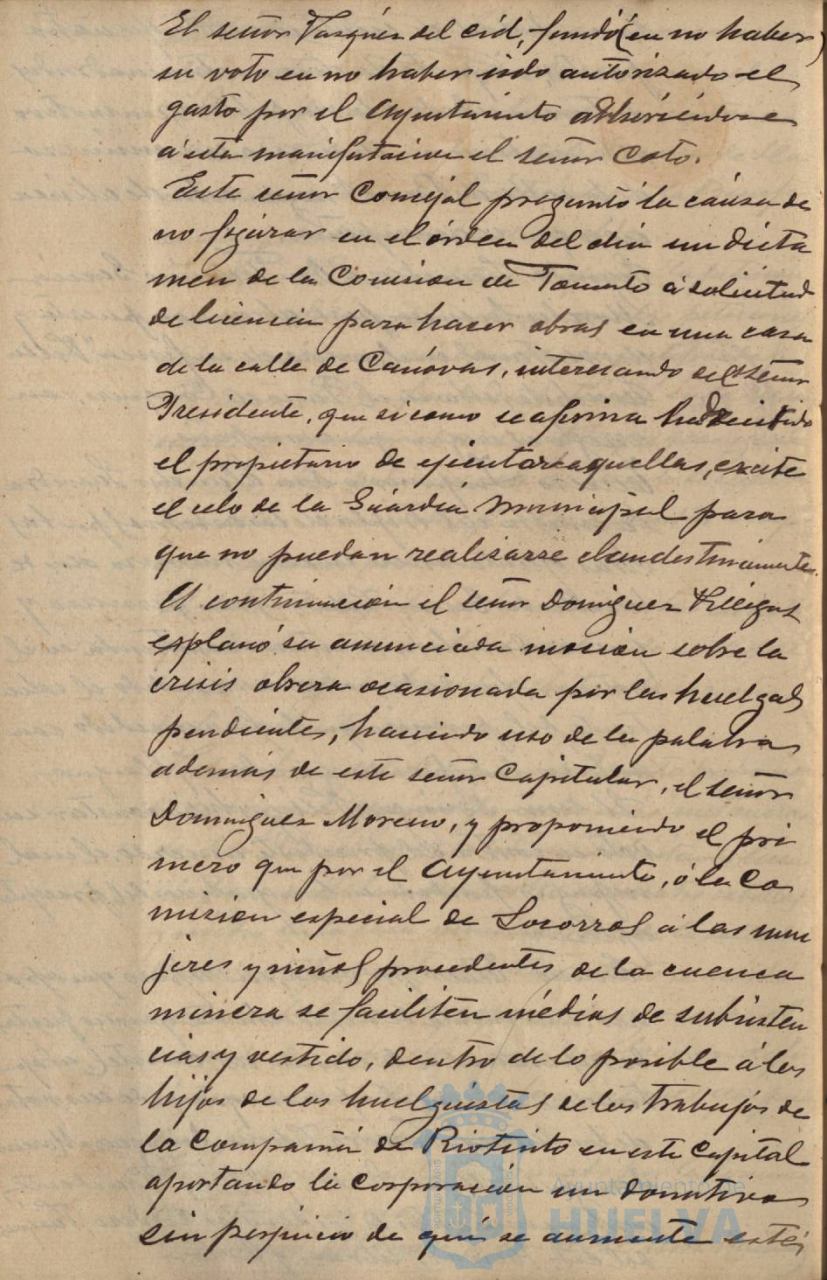 El señor Vazquez del Cid, fundó (en no haber)
su voto en no haber sido autorizado el
gasto por el Ayuntamiento adhiriéndose
á esta manifestacion el señor Coto.
Este señor Concejal preguntó la causa de
no figurar en el órden del dia un dicta
men de la Comision de Fomento á solicitud
de licencia para hacer obras en una casa
de la calle de Canóvas, interesando del señor
Presidente, que si como se afirma ha desistido
el propietario de ejecutar aquellas, excite
el celo de la Guardia Municipal para
que no puedan realizarse clandestinamente.
A continuacion el señor Dominguez Villegas
esplanó su anunciada mocion sobre la
crisis obrera ocasionada por las huelgas
pendientes, haciendo uso de la palabra
además de este señor Capitular, el señor
Dominguez Moreno, y proponiendo el pri
mero que por el Ayuntamiento, ó la Co
mision especial de Socorros á las mu
jeres y niños procedentes de la cuenca
minera se faciliten médios de subsisten
cias y vestido, dentro de lo posible á los
hijos de los huelguistas de los trabajos de
la Compañia de Riotinto en esta Capital
aportando la corporacion un donativo
sin perjuicio de que se aumente este
Ayuntamiento de
HUELVA